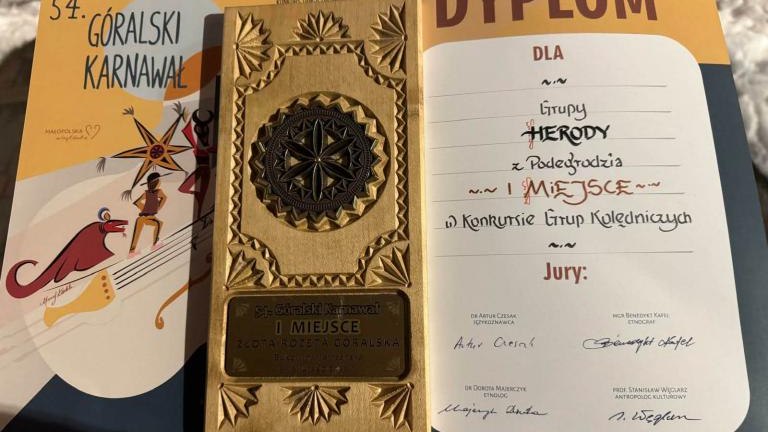 54.
GÓRALSKI
KARNAWAŁ
MAŁOPOLSKA
54. Góralski Karnawał
I MIEJSCE
ZŁOTA ROZETA GÓRALSKA
DYPLOM
DLA
Grupy
HERODY
z Podegrodzia
I MIEJSCE
w Konkursie Grup Kolędniczych
Jury:
DR ARTUR CZESAK
JĘZYKOZNAWCA
MGR BENEDYKT KAFEL
ETNOGRAF
Artur Czesak
Benedykt Kafel
DR DOROTA MAJERCZYK
ETNOLOG
PROF. STANISŁAW WĘGLARZ
ANTROPOLOG KULTUROWY
Majerczyk Dorota
S. Węglarz